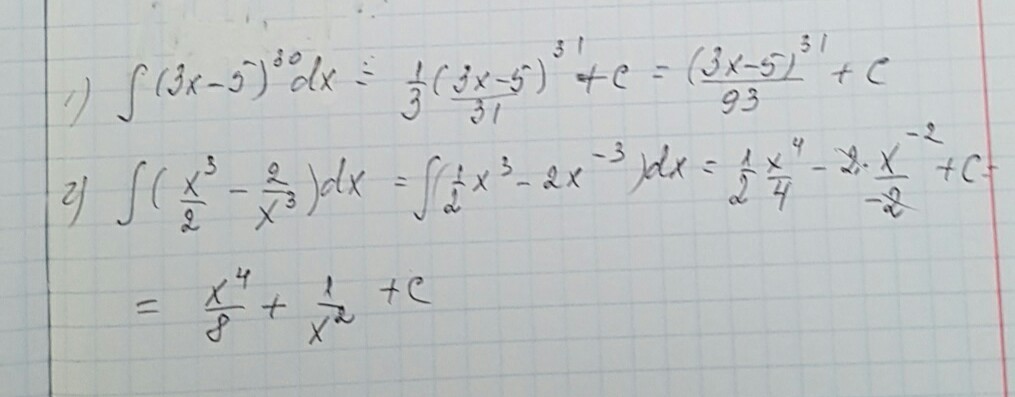 1) ∫(3x-5)^30 dx = 1/3 (3x-5)^31/31 + c = (3x-5)^31/93 + c
2) ∫(x^3/2 - 2/x^3)dx = ∫(1/2 x^3 - 2x^-3)dx = 1/2 x^4/4 - 2·x^-2/-2 + c =
= x^4/8 + 1/x^2 + c